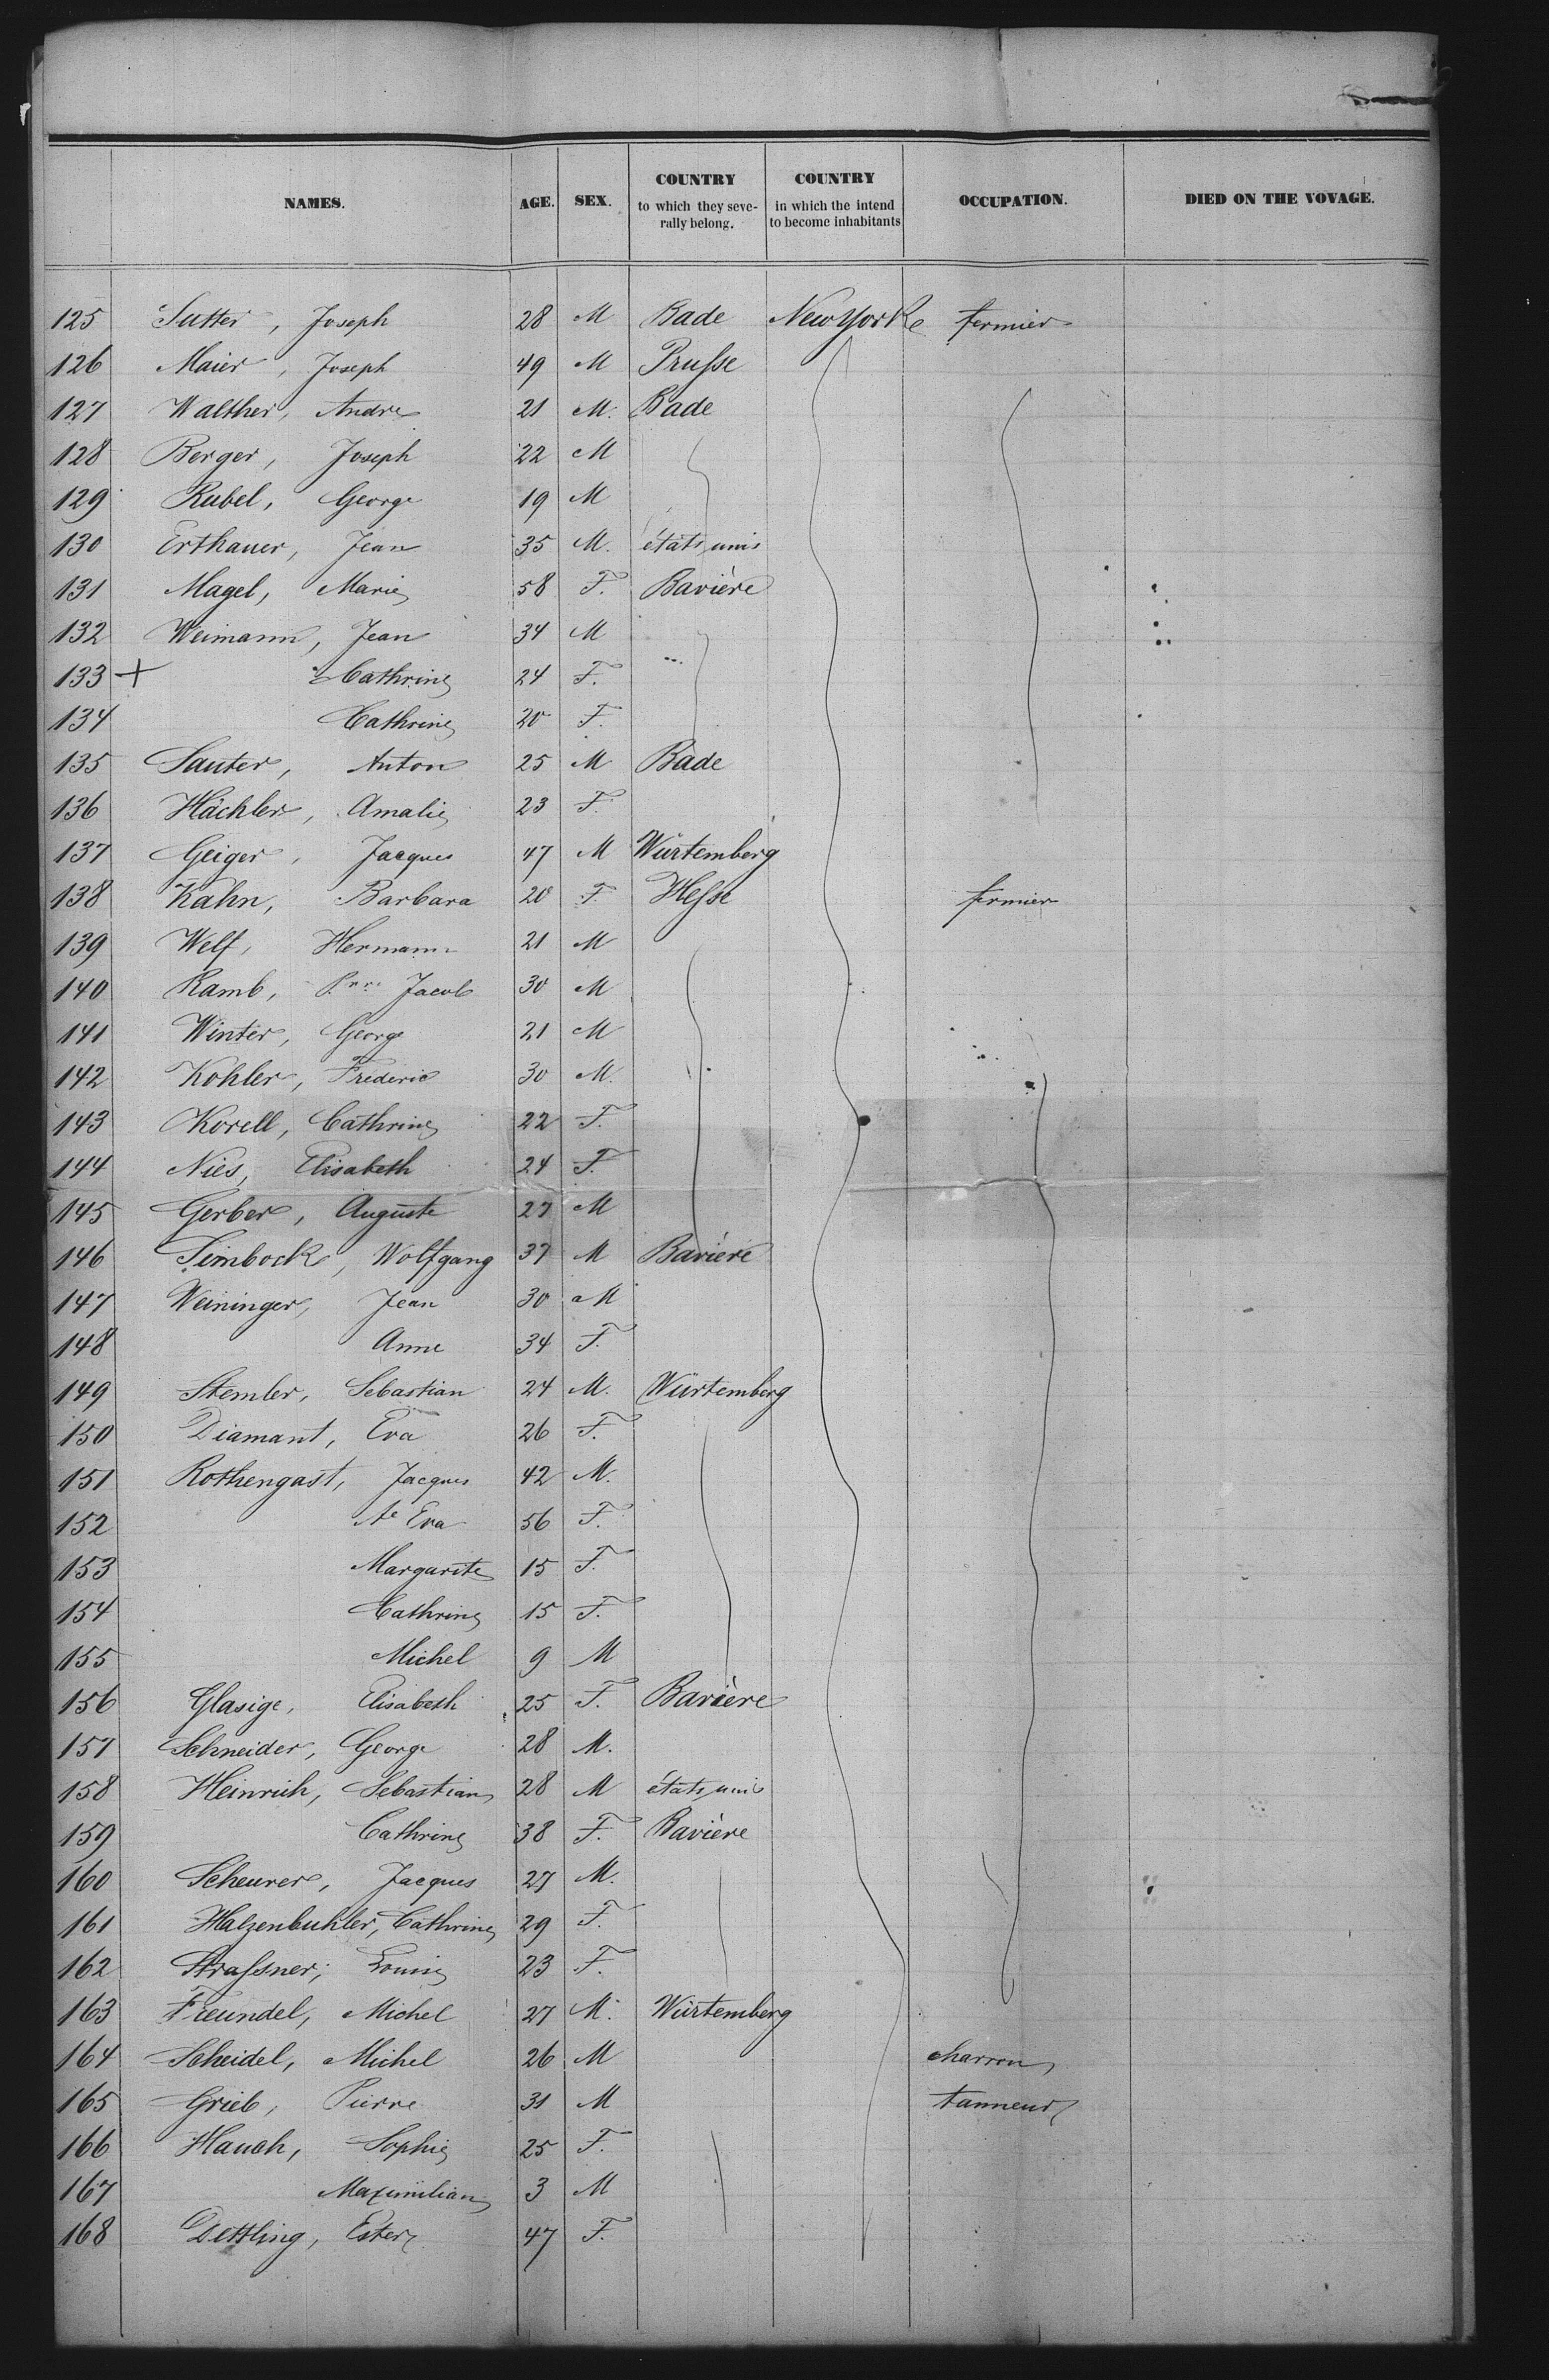 NAMES. AGE. SEX. COUNTRY to which they seve- rally belong. COUNTRY in which the intend to become inhabitants OCCUPATION. DIED ON THE VOYAGE.
125 Sutter, Joseph 28 M Bade New Yorke fermier
126 Maier, Joseph 49 M Prusse
127 Walther, Andre 21 M. Bade
128 Berger, Joseph 22 M
129 Rubel, George 19 M
130 Erthauer, Jean 35 M. états unis
131 Magel, Marie 58 F. Bavière
132 Weimann, Jean 34 M
133 + Cathrine 24 F.
134 Cathrine 20 F.
135 Sauter, Anton 25 M Bade
136 Hächler, Amalie 23 F.
137 Geiger, Jacques 47 M Würtemberg
138 Kahn, Barbara 20 F. Hesse fermier
139 Welf, Hermann 21 M
140 Ramb, Jacob 30 M
141 Winter, George 21 M
142 Kohler, Frederic 30 M.
143 Korell, Cathrine 22 F.
144 Nies, Elisabeth 24 F.
145 Gerber, Auguste 27 M
146 Simbock, Wolfgang 37 M Bavière
147 Weininger, Jean 30 M
148 Anne 34 F.
149 Stemler, Sebastian 24 M. Würtemberg
150 Diamant, Eva 26 F.
151 Rothengast, Jacques 42 M.
152 Eva 56 F.
153 Margarite 15 F.
154 Cathrine 15 F.
155 Michel 9 M
156 Glasige, Elisabeth 25 F. Bavière
157 Schneider, George 28 M.
158 Heinrich, Sebastian 28 M états unis
159 Cathrine 38 F. Bavière
160 Scheurer, Jacques 27 M.
161 Halzenbuhler, Cathrine 29 F.
162 Strassner, Louise 23 F.
163 Freundel, Michel 27 M. Würtemberg
164 Scheidel, Michel 26 M charron
165 Grieb, Pierre 31 M tanneur
166 Hauch, Sophie 25 F.
167 Maximilian 3 M
168 Dettling, Ester 47 F.